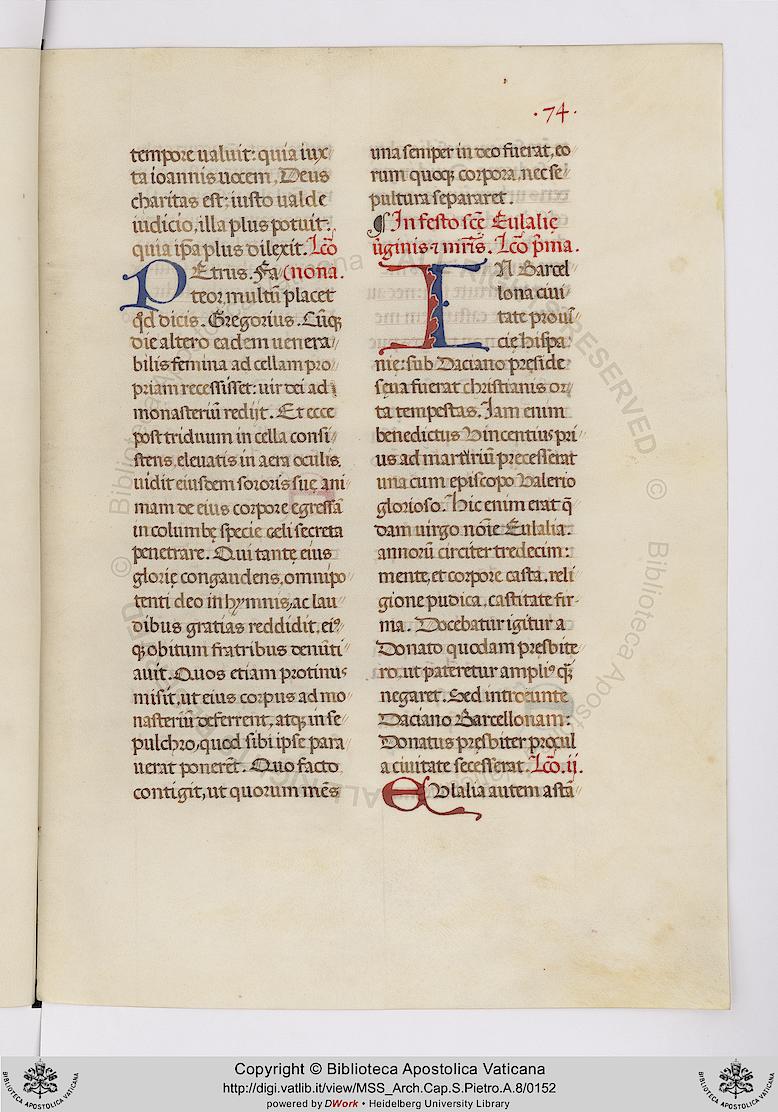 ·74·
tempore ualuit: quia iux
ta ioannis uocem, Deus
charitas est: iusto ualde
iudicio, illa plus potuit:
quia ip̄a plus dilexit. Lcō
PEtrus. Fa (nona.
teor multū placet
qd̄ dicis. Gregorius. Cūq
die altero eadem uenera
bilis femina ad cellam pro
priam recessisset: uir dei ad
monasteriū redijt. Et ecce
post triduum in cella consi
stens, eleuatis in aera oculis,
uidit eiusdem sororis suę ani
mam de eius corpore egressā
in columbę specie cęli secreta
penetrare. Qui tantę eius
glorię congaudens, omnipo
tenti deo in hymnis, ac lau
dibus gratias reddidit, eiꝰ
qꝫ obitum fratribus denūti
auit. Quos etiam protinus
misit, ut eius corpus ad mo
nasteriū deferrent, atqꝫ in se
pulchro, quod sibi ipse para
uerat ponerēt. Quo facto
contigit, ut quorum mēs
una semper in deo fuerat, eo
rum quoqꝫ corpora, nec se
pultura separaret.
¶ In festo scē Eulalię
ūginis ⁊ mr̄is. Lcō p̄ma.
IN Barcel
lona ciui
tate prouī
cię hispa
nię: sub Daciano pręside
seua fuerat christianis or
ta tempestas. Jam enim
benedictus Vincentius pri
us ad martiriū precesserat
una cum episcopo Valerio
glorioso. Hic enim erat q̄
dam uirgo noīe Eulalia.
annorū circiter tredecim:
mente, et corpore casta, reli
gione pudica, castitate fir-
ma. Docebatur igitur a
Donato quodam presbite
ro, ut pateretur ampliꝰ q̄
negaret. Sed introeunte
Daciano Barcellonam:
Donatus presbiter procul
a ciuitate secesserat. Lcō. ii.
EVlalia autem astā
Copyright © Biblioteca Apostolica Vaticana
http://digi.vatlib.it/view/MSS_Arch.Cap.S.Pietro.A.8/0152
powered by DWork • Heidelberg University Library
BIBLIOTECA APOSTOLICA VATICANA
BIBLIOTECA APOSTOLICA VATICANA